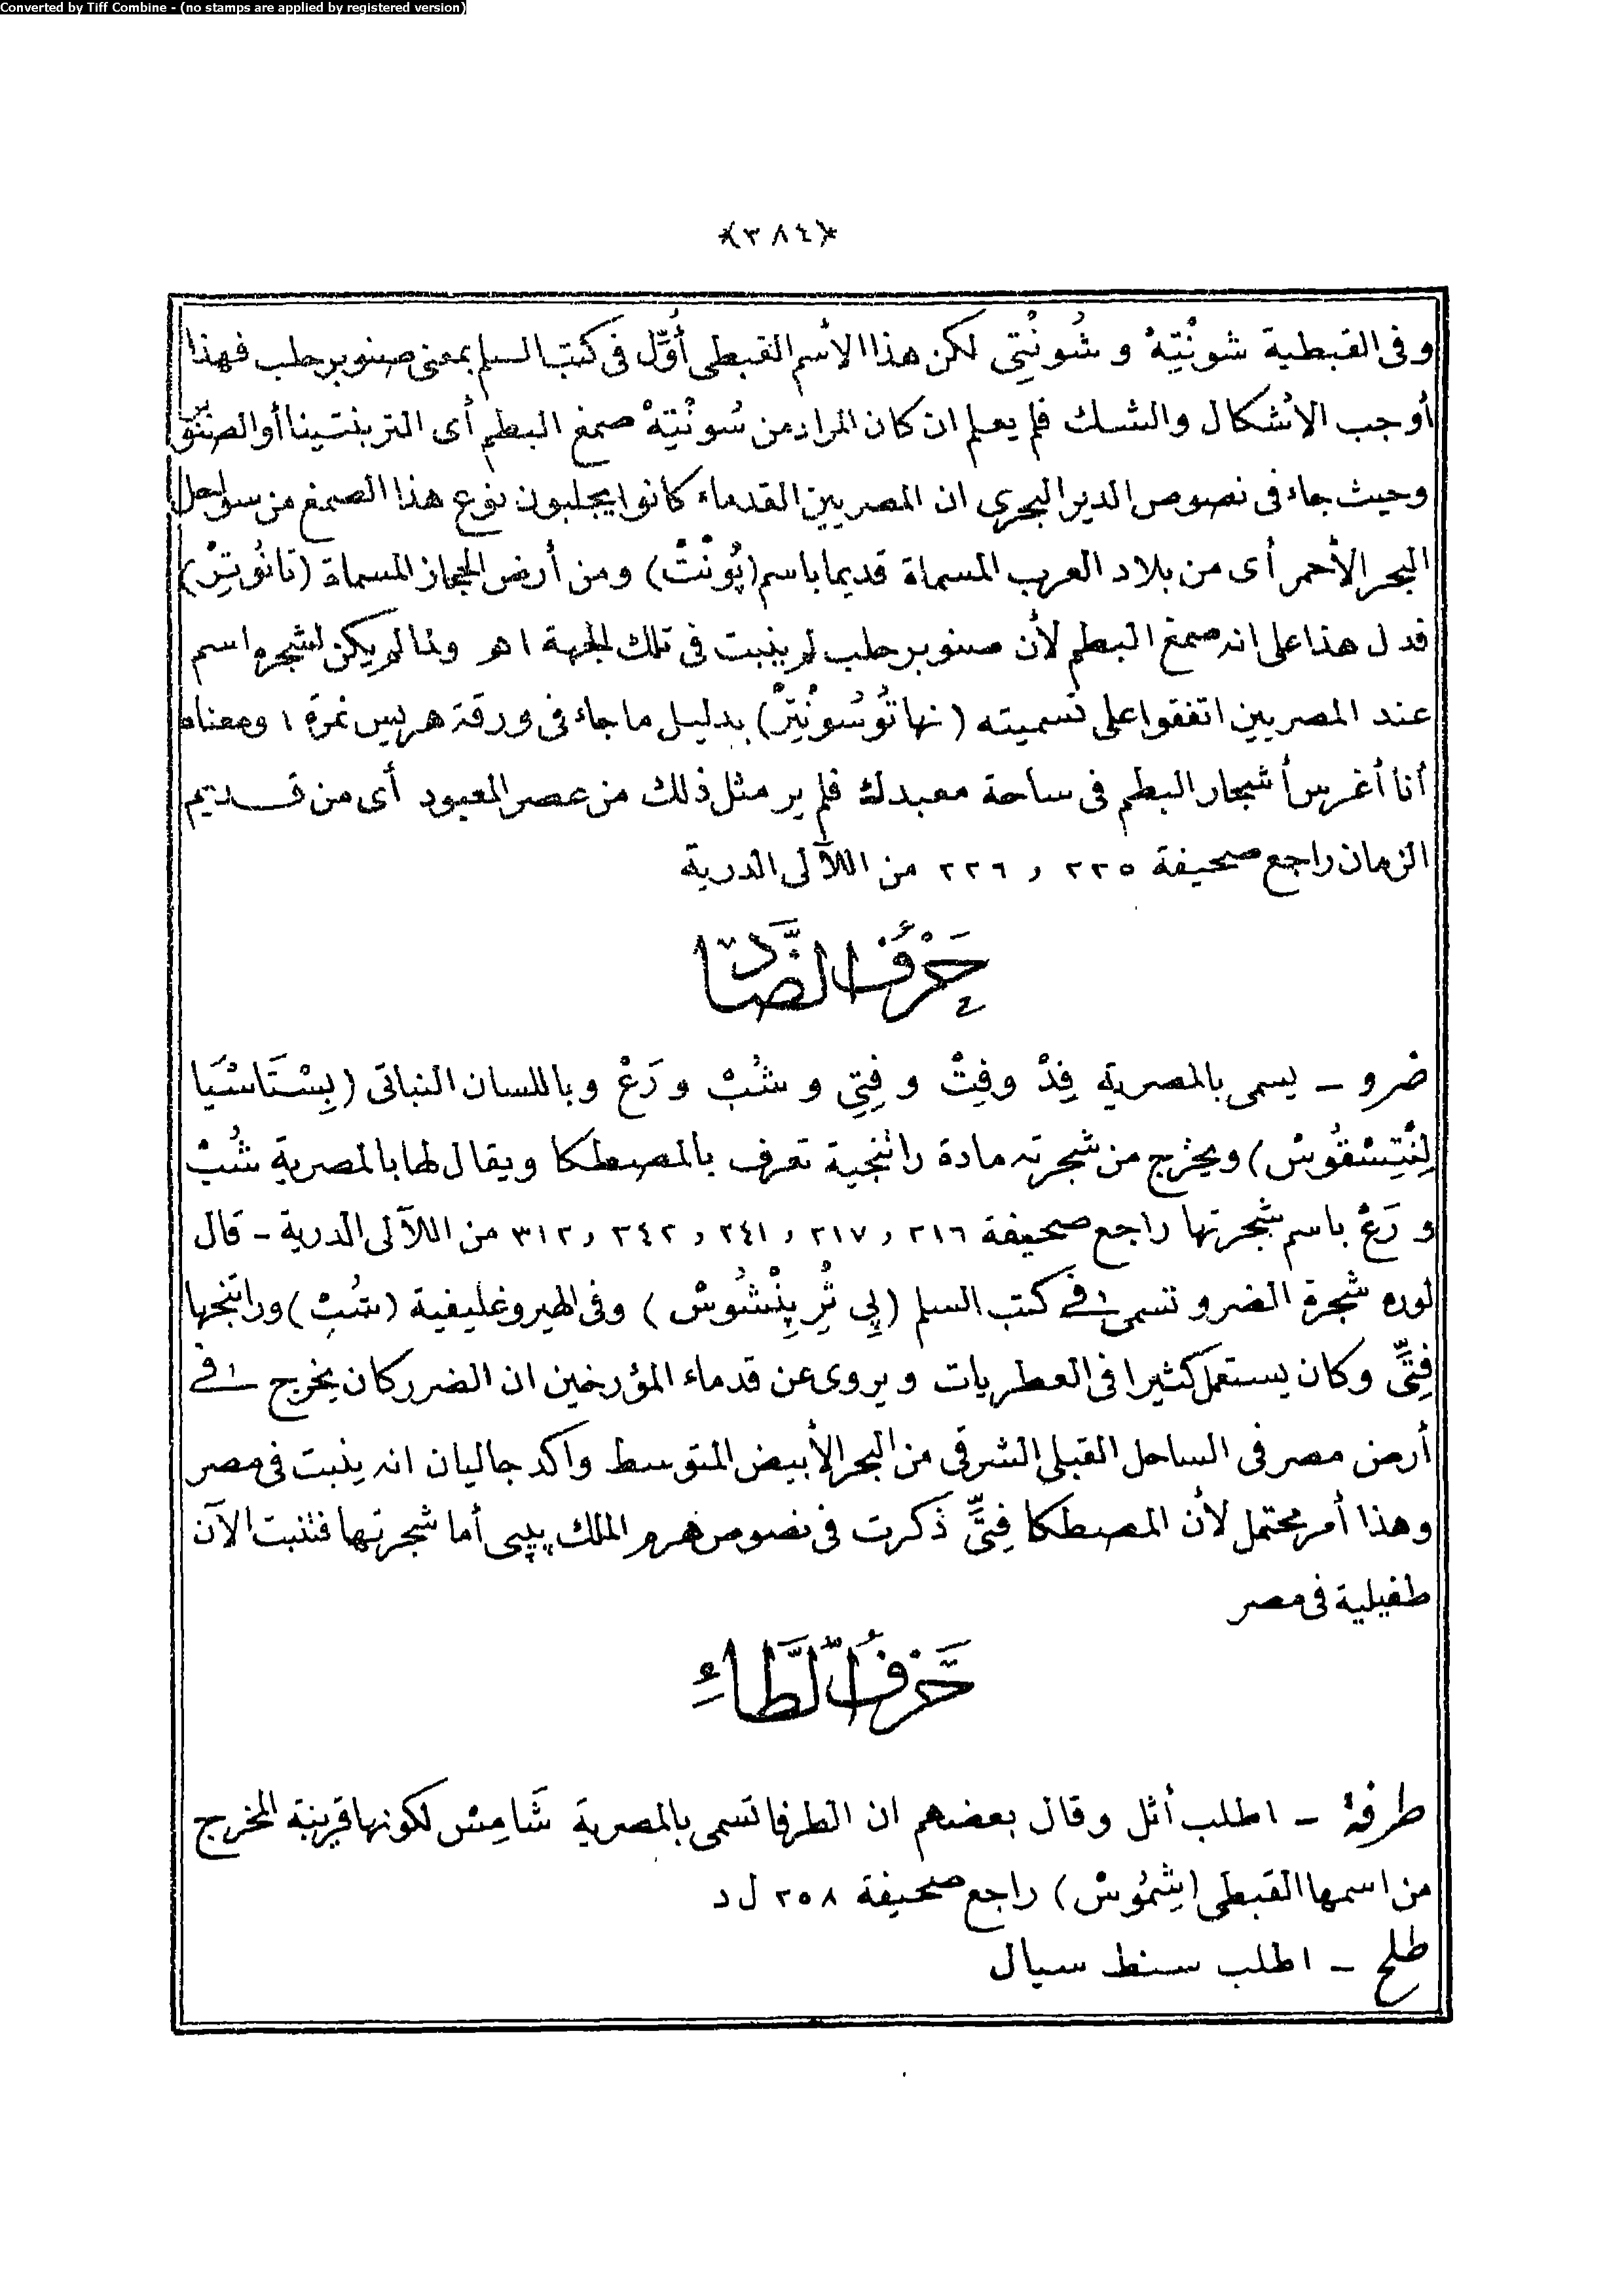 Converted by Tiff Combine - (no stamps are applied by registered version)
﴿٣٨٤﴾
وفى القبطية شونْتِهْ و شُونْتِى لكن هذا الأسم القبطى أُوّل فى كتب السلم بمعنى صنوبر حلب فهذا
أوجب الأشكال والشك فلم يعلم ان كان المراد من سُونْتِهْ صمغ البطم أى التربنتينا أو الصنوبر
وحيث جاء فى نصوص الدير البحرى ان المصريين القدماء كانوا يجلبون نوع هذا الصمغ من سواحل
البحر الأحمر أى من بلاد العرب المسماة قديما باسم (پُونْتْ) ومن أرض الحجاز المسماة (تانُوتِرْ)
فدل هذا على انه صمغ البطم لأن صنوبر حلب لم ينبت فى تلك الجهة اهـ ولما لم يكن لشجره اسم
عند المصريين اتفقوا على تسميته (نهاتُوسُونْتِرْ) بدليل ما جاء فى ورقة هريس نمرة ١ ومعناه
أنا أغرس أشجار البطم فى ساحة معبدك فلم ير مثل ذلك من عصر المعبود أى من قديم
الزمان راجع صحيفة ٢٢٥ و ٢٢٦ من اللآلى الدرية
حَرْفُ الضَّادِ
ضرو ـ يسمى بالمصرية فِدْ وفِتْ و فِتِى و شُبْ و رَعْ وباللسان النباتى (بِسْتَاسْيَا
لِنْتِسْقُوسْ) ويخرج من شجرته مادة راتنجية تعرف بالمصطكا ويقال لها بالمصرية شُبْ
و رَعْ باسم شجرتها راجع صحيفة ٢١٦ و ٢١٧ و ٢٤١ و ٢٤٢ و ٣١٢ من اللآلى الدرية ـ قال
لوره شجرة الضرو تسمى فى كتب السلم (پِى ثْرِ پِنْشُوسْ) وفى الهيروغليفية (شُبْ) وراتنجها
فِتِّى وكان يستعمل كثيرا فى العطريات ويروى عن قدماء المؤرخين ان الضرر كان يخرج فى
أرض مصر فى الساحل القبلى الشرقى من البحر الأبيض المتوسط واكد جاليان انه ينبت فى مصر
وهذا أمر محتمل لأن المصطكا فِتِّى ذكرت فى نصوص هرم الملك پيپى أما شجرتها فتنبت الآن
طفيلية فى مصر
حَرْفُ الطَّاءِ
طرفة ـ اطلب أثل وقال بعضهم ان الطرفا تسمى بالمصرية شَامِسْ لكونها قريبة المخرج
من اسمها القبطى (شِمُوسْ) راجع صحيفة ٢٥٨ ل د
طلح ـ اطلب سنط سيال